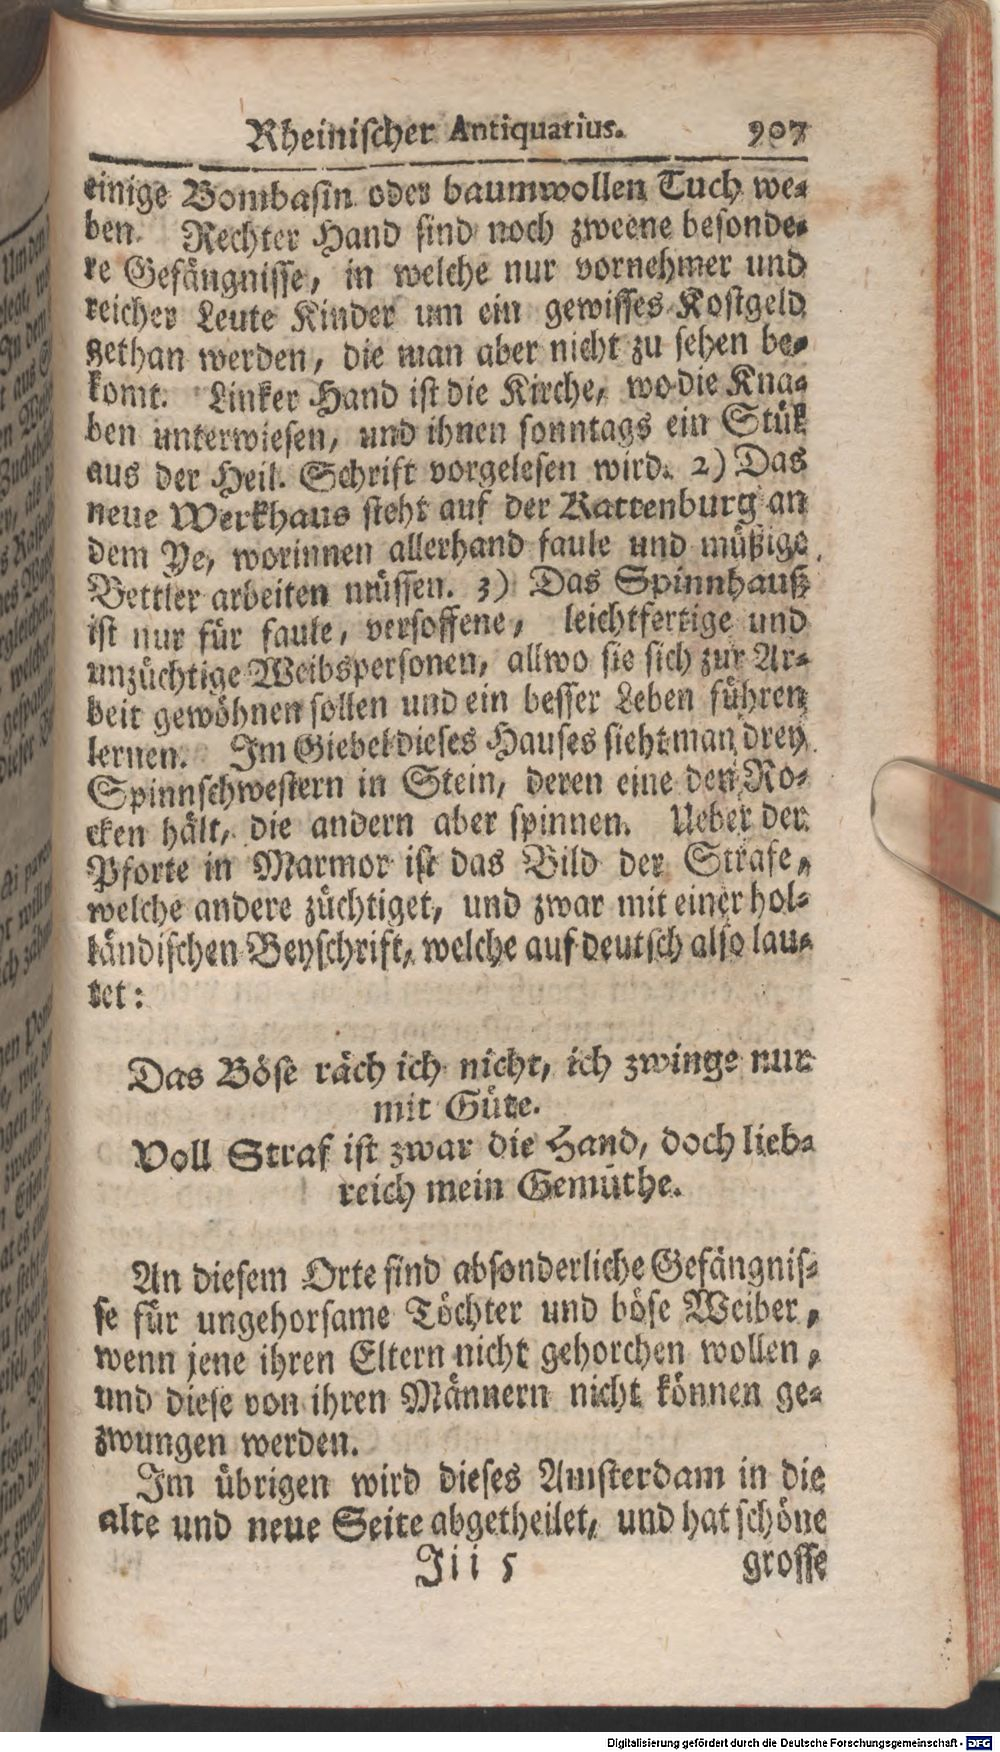 Rheinischer Antiquarius. 907
einige Bombasin oder baumwollen Tuch we-
ben. Rechter Hand sind noch zweene besonde-
re Gefängnisse, in welche nur vornehmer und
reicher Leute Kinder um ein gewisses Kostgeld
gethan werden, die man aber nicht zu sehen be-
komt. Linker Hand ist die Kirche, wo die Kna-
ben unterwiesen, und ihnen sonntags ein Stük
aus der Heil. Schrift vorgelesen wird. 2) Das
neue Werkhaus steht auf der Rattenburg an
dem Ye, worinnen allerhand faule und müßige
Bettler arbeiten müssen. 3) Das Spinnhauß
ist nur für faule, versoffene, leichtfertige und
unzüchtige Weibspersonen, allwo sie sich zur Ar-
beit gewöhnen sollen und ein besser Leben führen
lernen. Im Giebel dieses Hauses sieht man drey
Spinnschwestern in Stein, deren eine den Ro-
cken hält, die andern aber spinnen. Ueber der
Pforte in Marmor ist das Bild der Strafe,
welche andere züchtiget, und zwar mit einer hol-
ländischen Beyschrift, welche auf deutsch also lau-
tet:
Das Böse räch ich nicht, ich zwinge nur
mit Güte.
Voll Straf ist zwar die Hand, doch lieb-
reich mein Gemüthe.
An diesem Orte sind absonderliche Gefängnis-
se für ungehorsame Töchter und böse Weiber,
wenn jene ihren Eltern nicht gehorchen wollen,
und diese von ihren Männern nicht können ge-
zwungen werden.
Im übrigen wird dieses Amsterdam in die
alte und neue Seite abgetheilet, und hat schöne
Jii i 5 grosse
Digitalisierung gefördert durch die Deutsche Forschungsgemeinschaft - DFG